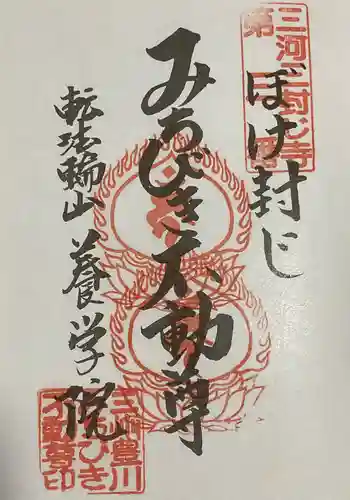 三河三封じ寺
第一番
ぼけ封じ
みちびき不動尊
転法輪山 養学院
三州豊川
みちびき
不動尊印